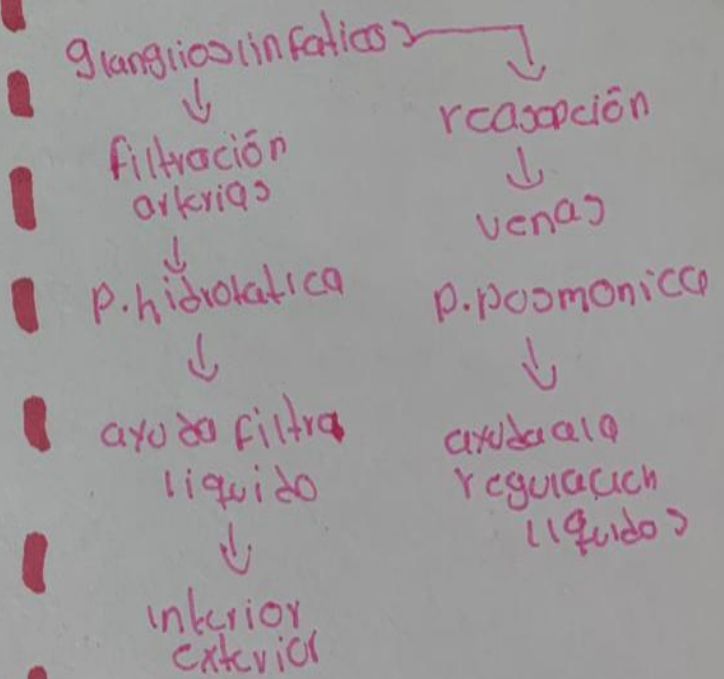 glanglios linfaticos
filtración
arterias
p. hidrotatica
ayuda filtra
liquido
interior
exterior
reasopción
venas
p. posmonica
ayuda a la
regulacich
liquidos